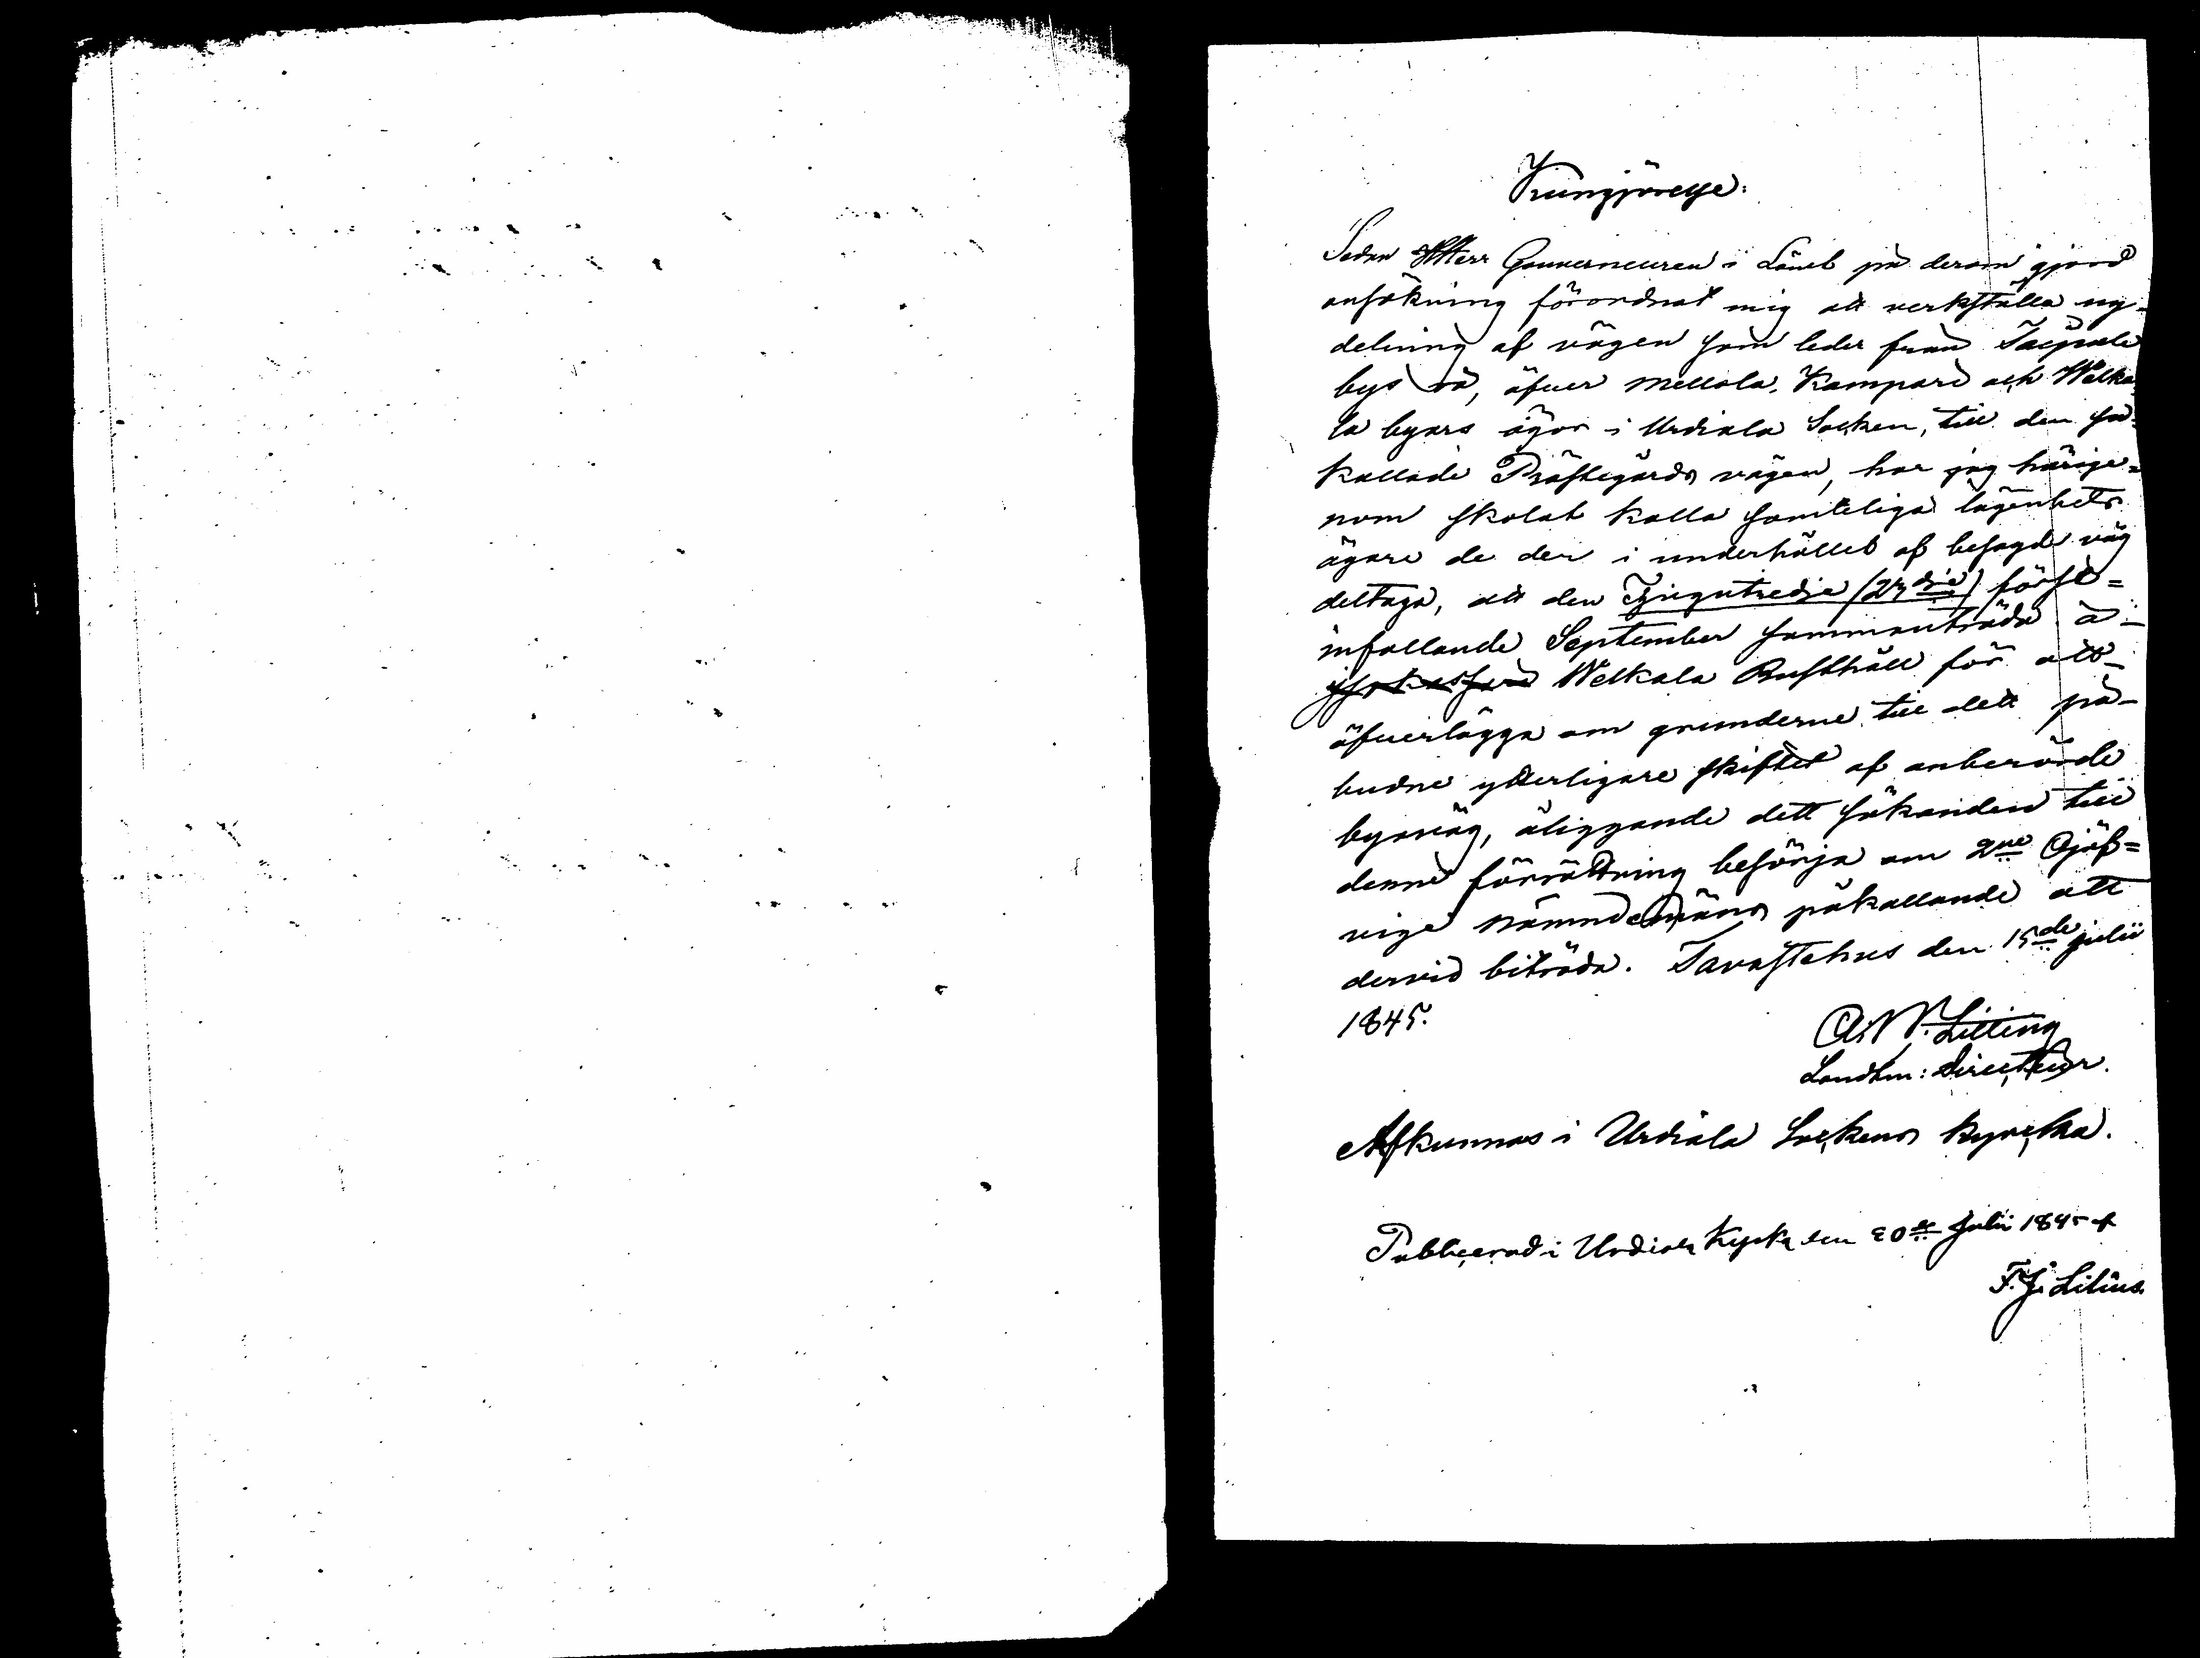 Kungjörelse:
Sedan Herr Gouverneuren i Länet på derom gjord
ansökning förordnat mig att verkställa ny-
delning af vägen som leder från Taipale
bys rå, öfver Mellola, Kampari och Welka-
la byars ägor i Urdiala Socken, till den så
kallade Prästegårds vägen, har jag härige=
nom skolat kalla samteliga lägenhets
ägare de der i underhållet af besagde väg
deltaga, att den Tjugutredje (23dje) först=
infallande September sammanträda å-
Welkala Rusthåll för att-
öfverlägga om grunderne till dett på-
budne ytterligare skiftet af anberörde
byaväg, åliggande dett sökanden till
denne förrättning besörja om 2ne Ojäf=
vige Nämndemäns påkallande att
dervid biträda. Tavastehus den 15de Julii
1845.
Litting
Landtm: Directeur.
Afkunnas i Urdiala Sockens kyrcka.
Publicerad i Urdiala Kyrka den 20de Julii 1845 af
F. J. Lilius.